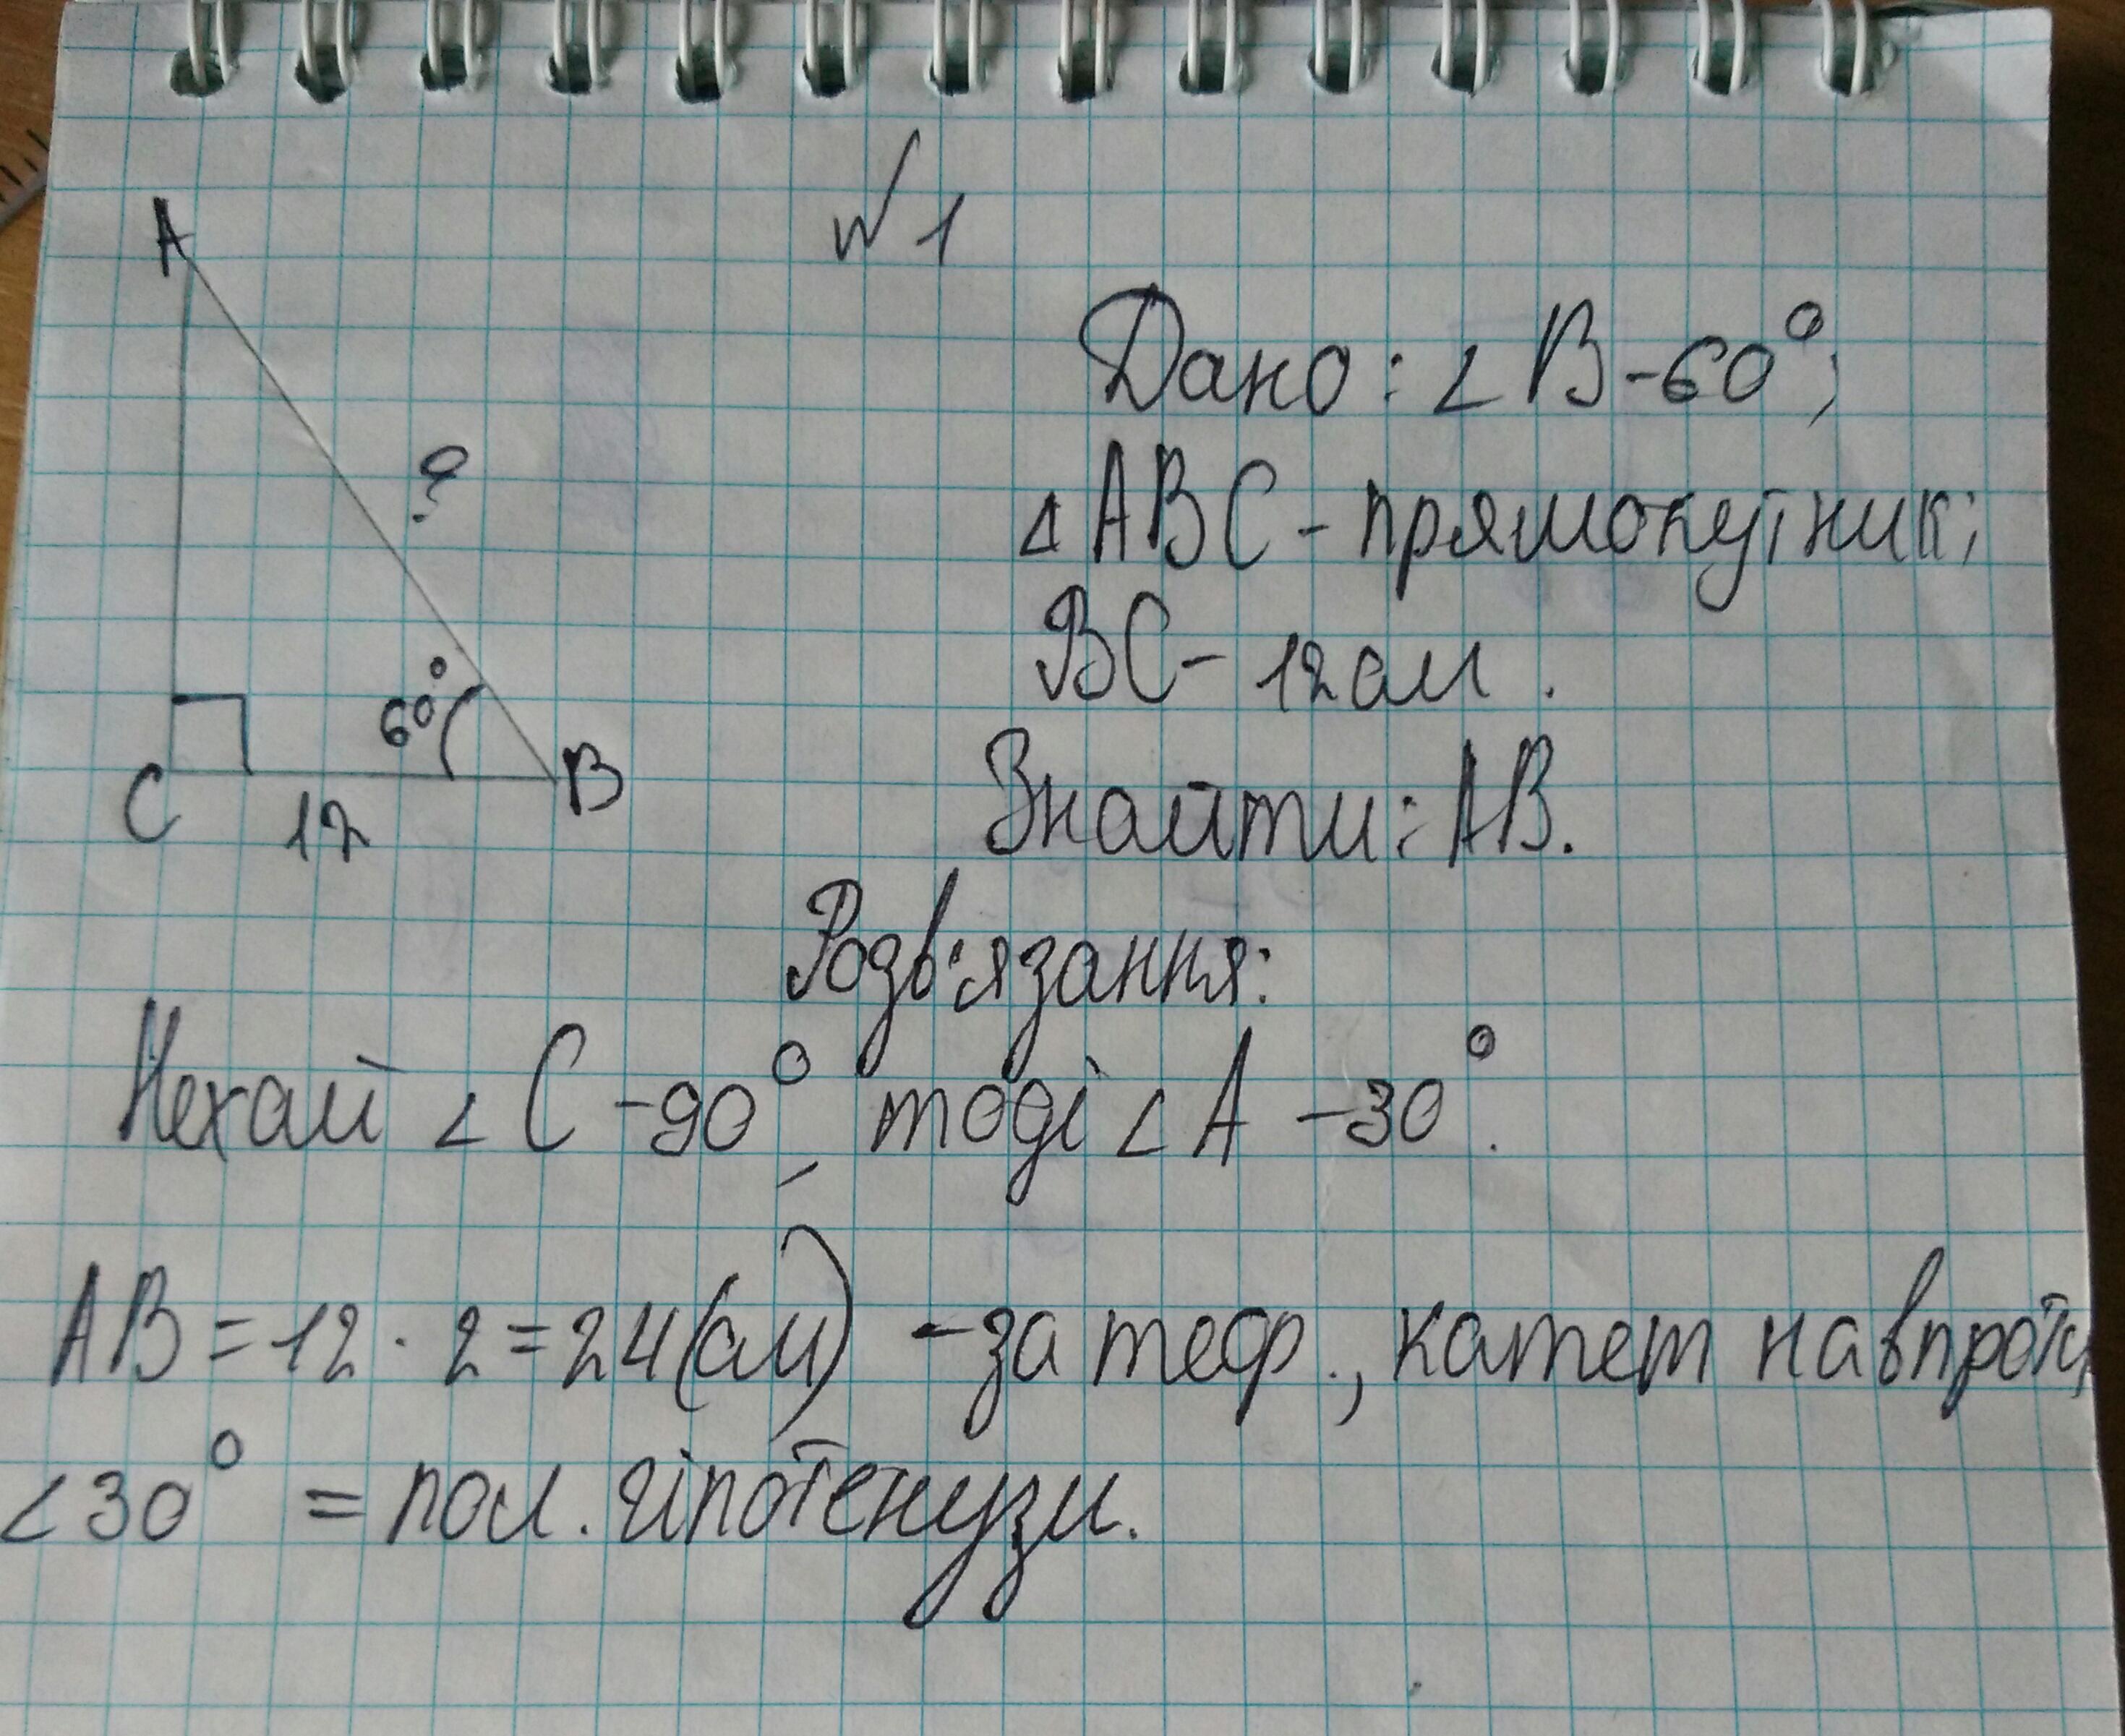 №1
A
Дано: ∠B-60°;
?
△ABC-прямокутник;
BC-12см.
60°
C
B
12
Знайти: AB.
Розв'язання:
Нехай ∠C-90°, тоді ∠A-30°.
AB=12·2=24(см) -за теор., катет навпроти
∠30° = пол. гіпотенузи.